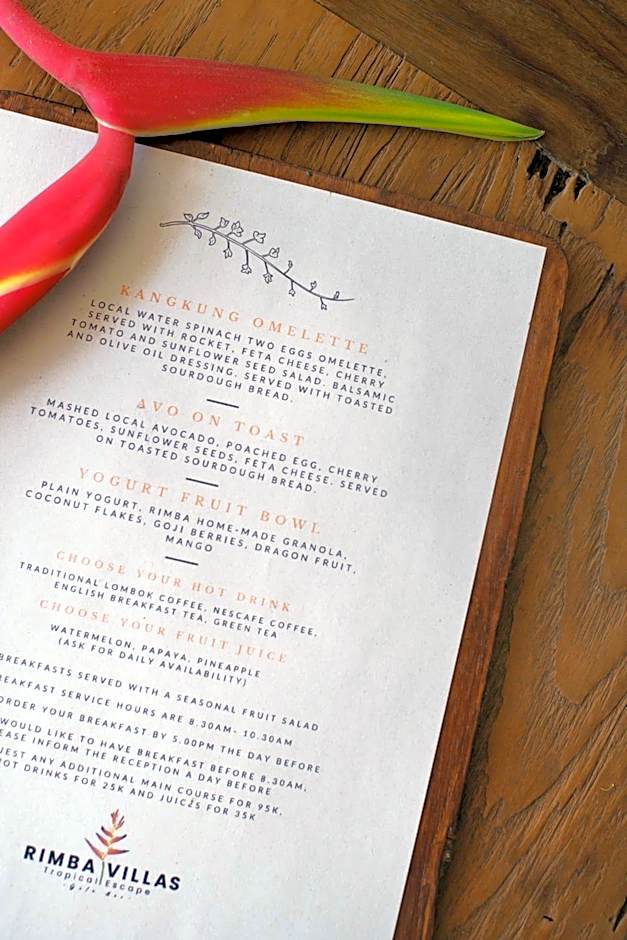 KANGKUNG OMELETTE
LOCAL WATER SPINACH TWO EGGS OMELETTE,
SERVED WITH ROCKET, FETA CHEESE, CHERRY
TOMATO AND SUNFLOWER SEED SALAD. BALSAMIC
AND OLIVE OIL DRESSING. SERVED WITH TOASTED
SOURDOUGH BREAD.
AVO ON TOAST
MASHED LOCAL AVOCADO, POACHED EGG, CHERRY
TOMATOES, SUNFLOWER SEEDS, FETA CHEESE. SERVED
ON TOASTED SOURDOUGH BREAD.
YOGURT FRUIT BOWL
PLAIN YOGURT, RIMBA HOME-MADE GRANOLA,
COCONUT FLAKES, GOJI BERRIES, DRAGON FRUIT,
MANGO
CHOOSE YOUR HOT DRINK
TRADITIONAL LOMBOK COFFEE, NESCAFE COFFEE,
ENGLISH BREAKFAST TEA, GREEN TEA
CHOOSE YOUR FRUIT JUICE
WATERMELON, PAPAYA, PINEAPPLE
(ASK FOR DAILY AVAILABILITY)
BREAKFASTS SERVED WITH A SEASONAL FRUIT SALAD
EAKFAST SERVICE HOURS ARE 8.30AM- 10.30AM
ORDER YOUR BREAKFAST BY 5.00PM THE DAY BEFORE
WOULD LIKE TO HAVE BREAKFAST BEFORE 8.30AM,
EASE INFORM THE RECEPTION A DAY BEFORE
UEST ANY ADDITIONAL MAIN COURSE FOR 95K,
HOT DRINKS FOR 25K AND JUICES FOR 35K
RIMBA VILLAS
Tropical Escape